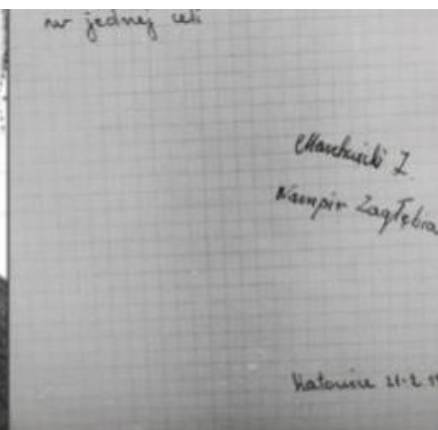 w jednej celi
Marchwicki Z
Wampir Zagłębia
Katowice 21-2